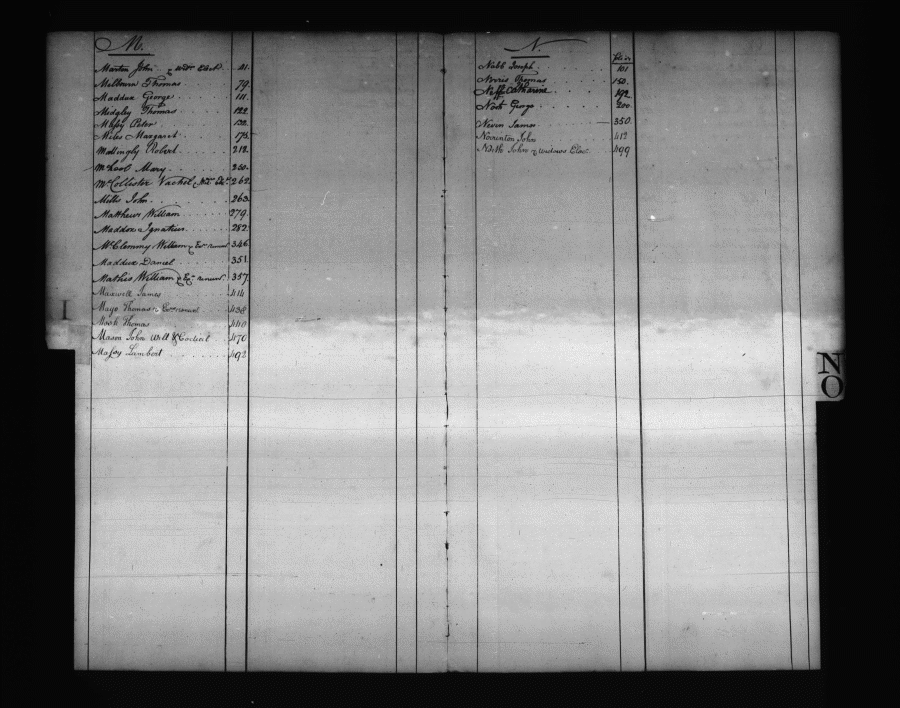 M.
Marton John & wid.s Elect. 41.
Melbourn Thomas 79.
Maddux George 111.
Midgley Thomas 122
Massy Peter 132.
Miles Margaret 173.
Mattingly Robert 218.
Mary 250.
McCollister Vachel 262.
Mills John 263.
Matthews William 279.
Maddox Ignatius 282.
McClemmy William & Exr. renun.n 346
Maddux Daniel 351.
Mathis William & Exr. renun.n 357.
Maxwell James 414
Mayo Thomas & Exr. renun.n 438
Mark Thomas 440
Mason John Will & Codicil 470
Massy Lambert 492
N.
Folio
Nabb Joseph 101
Norris Thomas 150.
Neff Catharine 192
North George 200
Nevin James 350.
Norrinton John 412
North John & widows Elec. 499
N
O